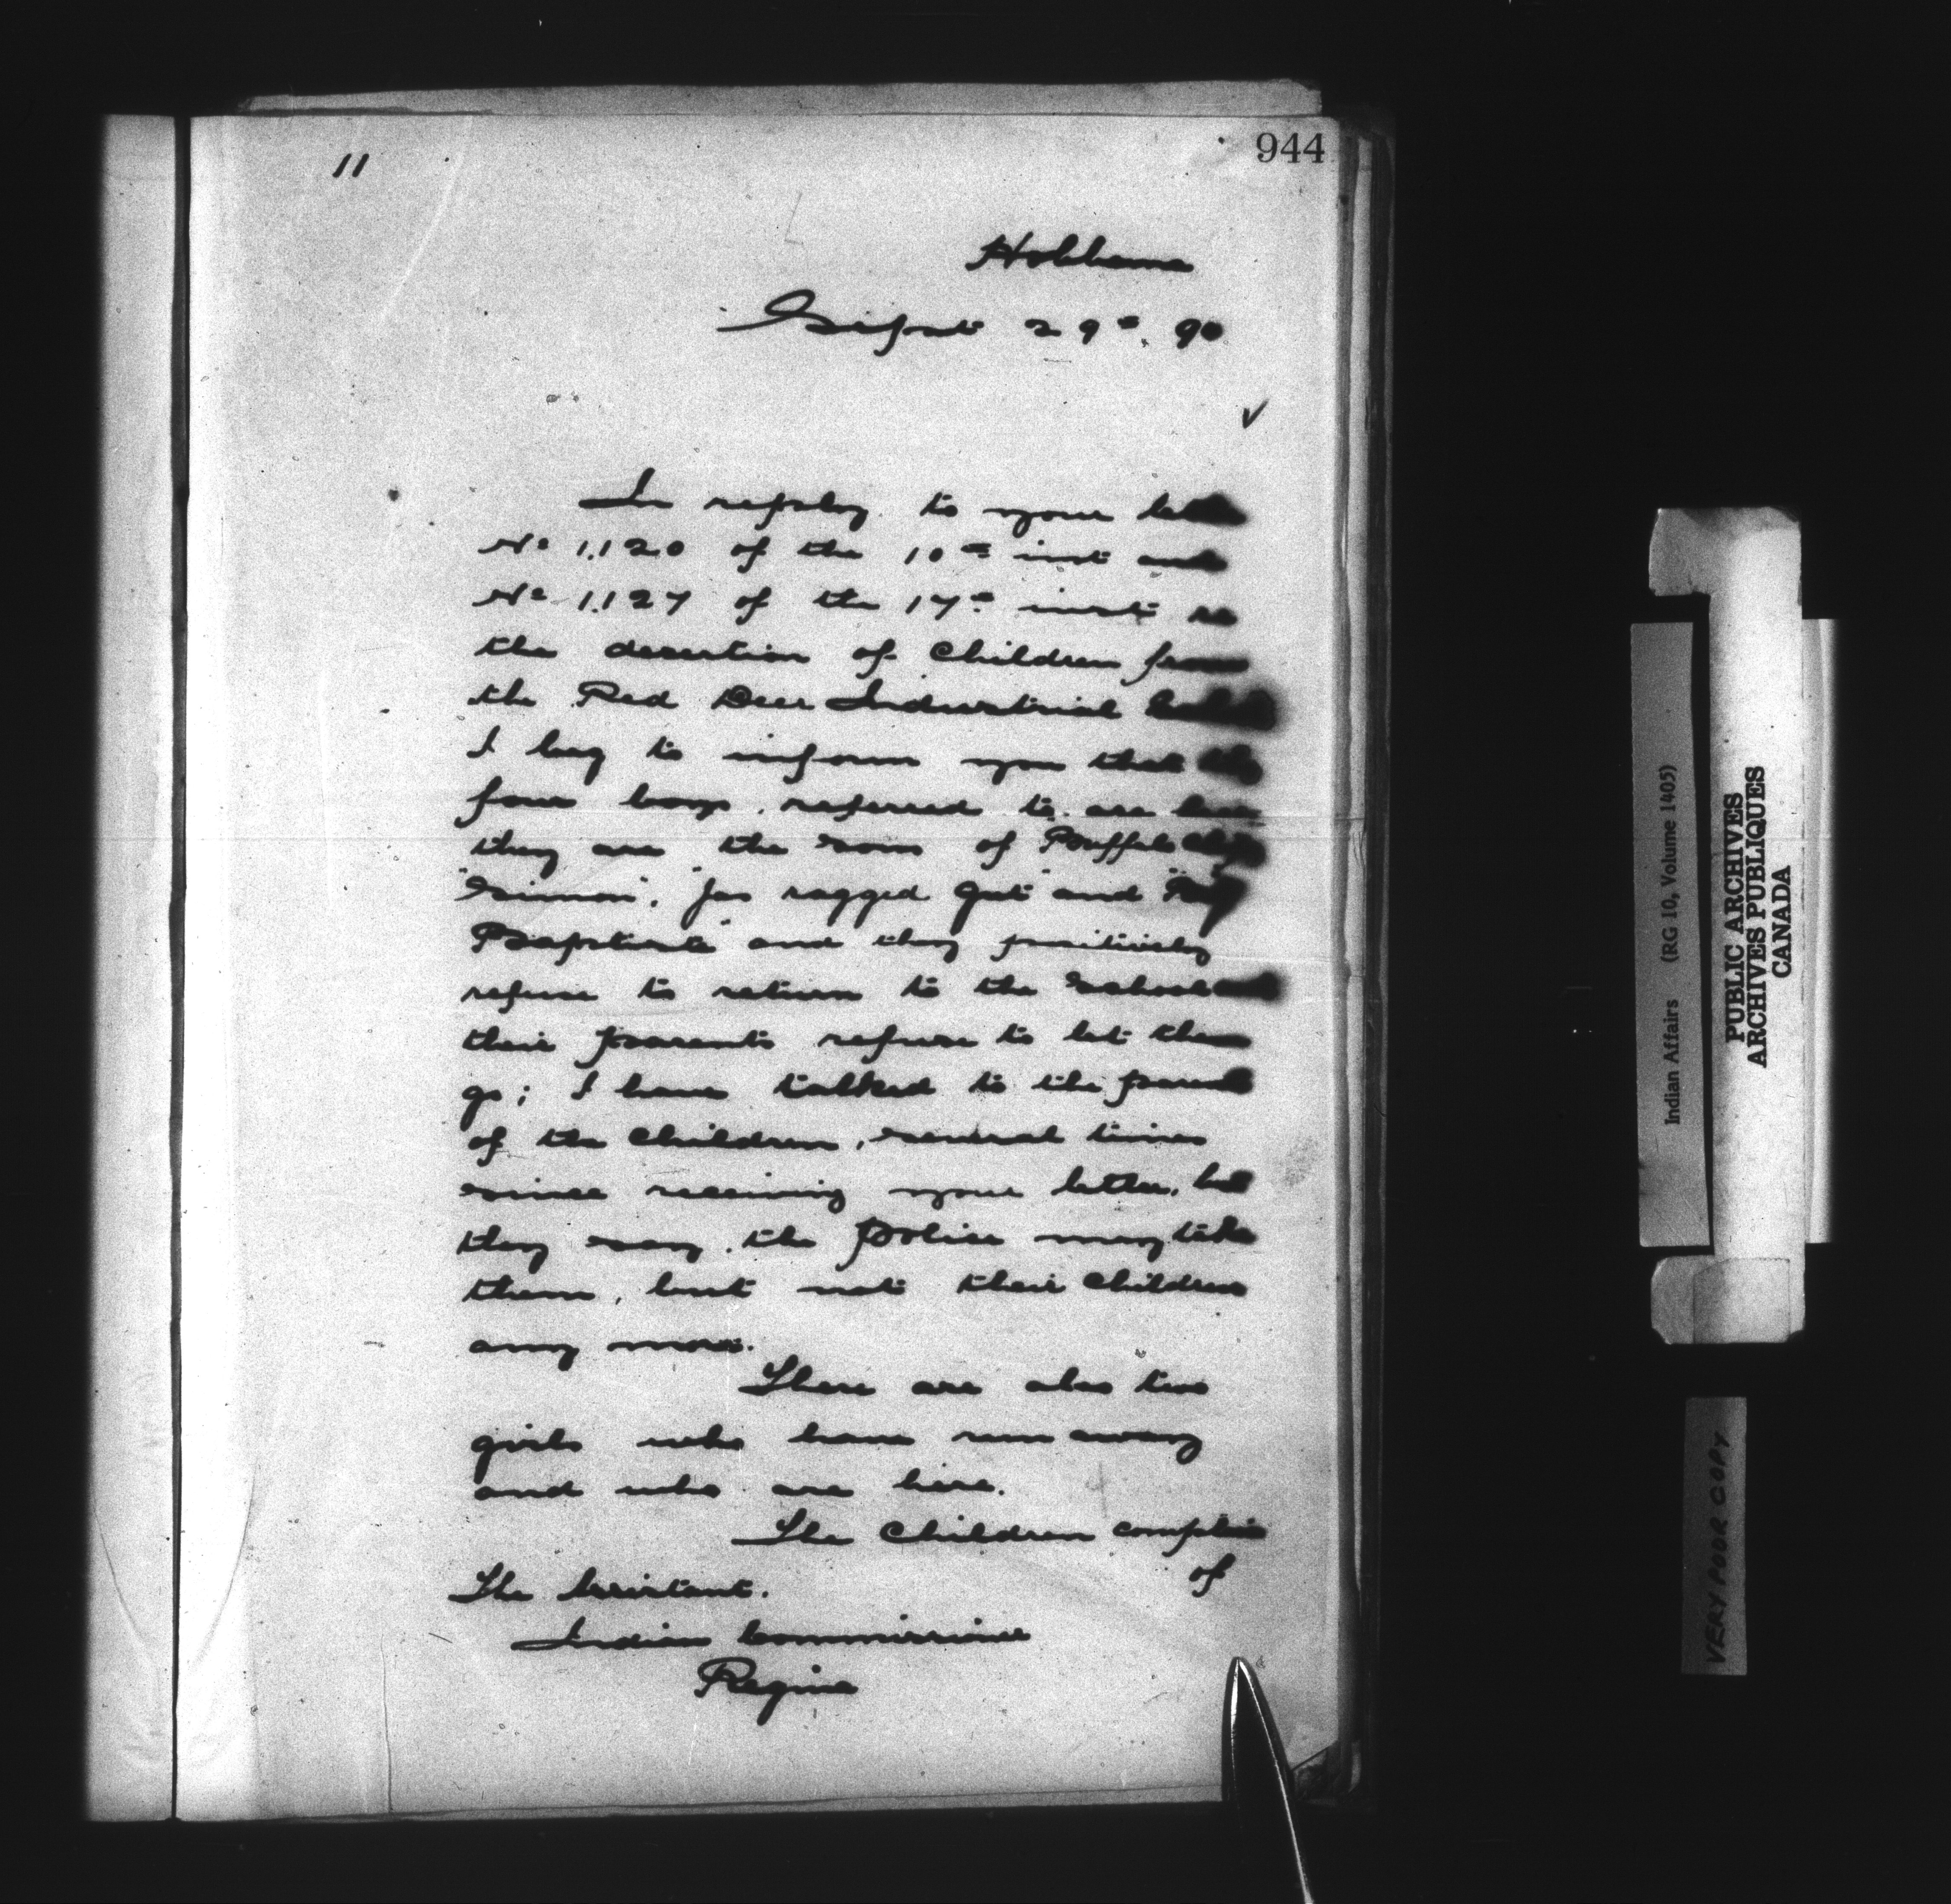 11
944
Hobbema
Sept 29th. 90
✓
In reply to your letter
No 1.120 of the 10th inst and
No 1.127 of the 17th inst re
the desertion of Children from
the Red Deer Industrial
I beg to inform you that the
four boys, referred to, are here
they are the sons of Buffalo
"Simon", "Jas ragged Gut" and
Baptiste" and they positively
refuse to return to the School and
their parents refuse to let them
go; I have talked to the parents
of the Children, several times
since receiving your letter, but
they say, the police may take
them, but not their Children
any more.
There are also two
girls who have run away
and who are here.
The Children complain
of
The Assistant.
Indian Commissioner
Regina
Indian Affairs (RG 10, Volume 1405)
PUBLIC ARCHIVES
ARCHIVES PUBLIQUES
CANADA
VERY POOR COPY